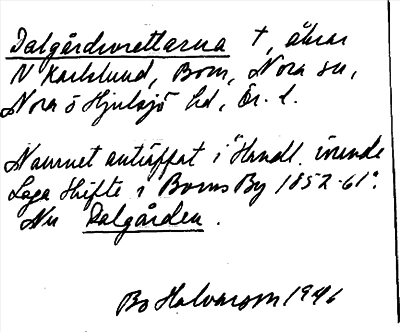 Dalgårdsvretarna †, åkrar
N Karlslund, Born, Nora sn,
Nora o Hjulsjö hd, Ör. l.
Namnet anträffat i "Handl. rörande
Laga Skifte i Borns By 1852-61".
Nu Dalgården.
Bo Halvarson 1946